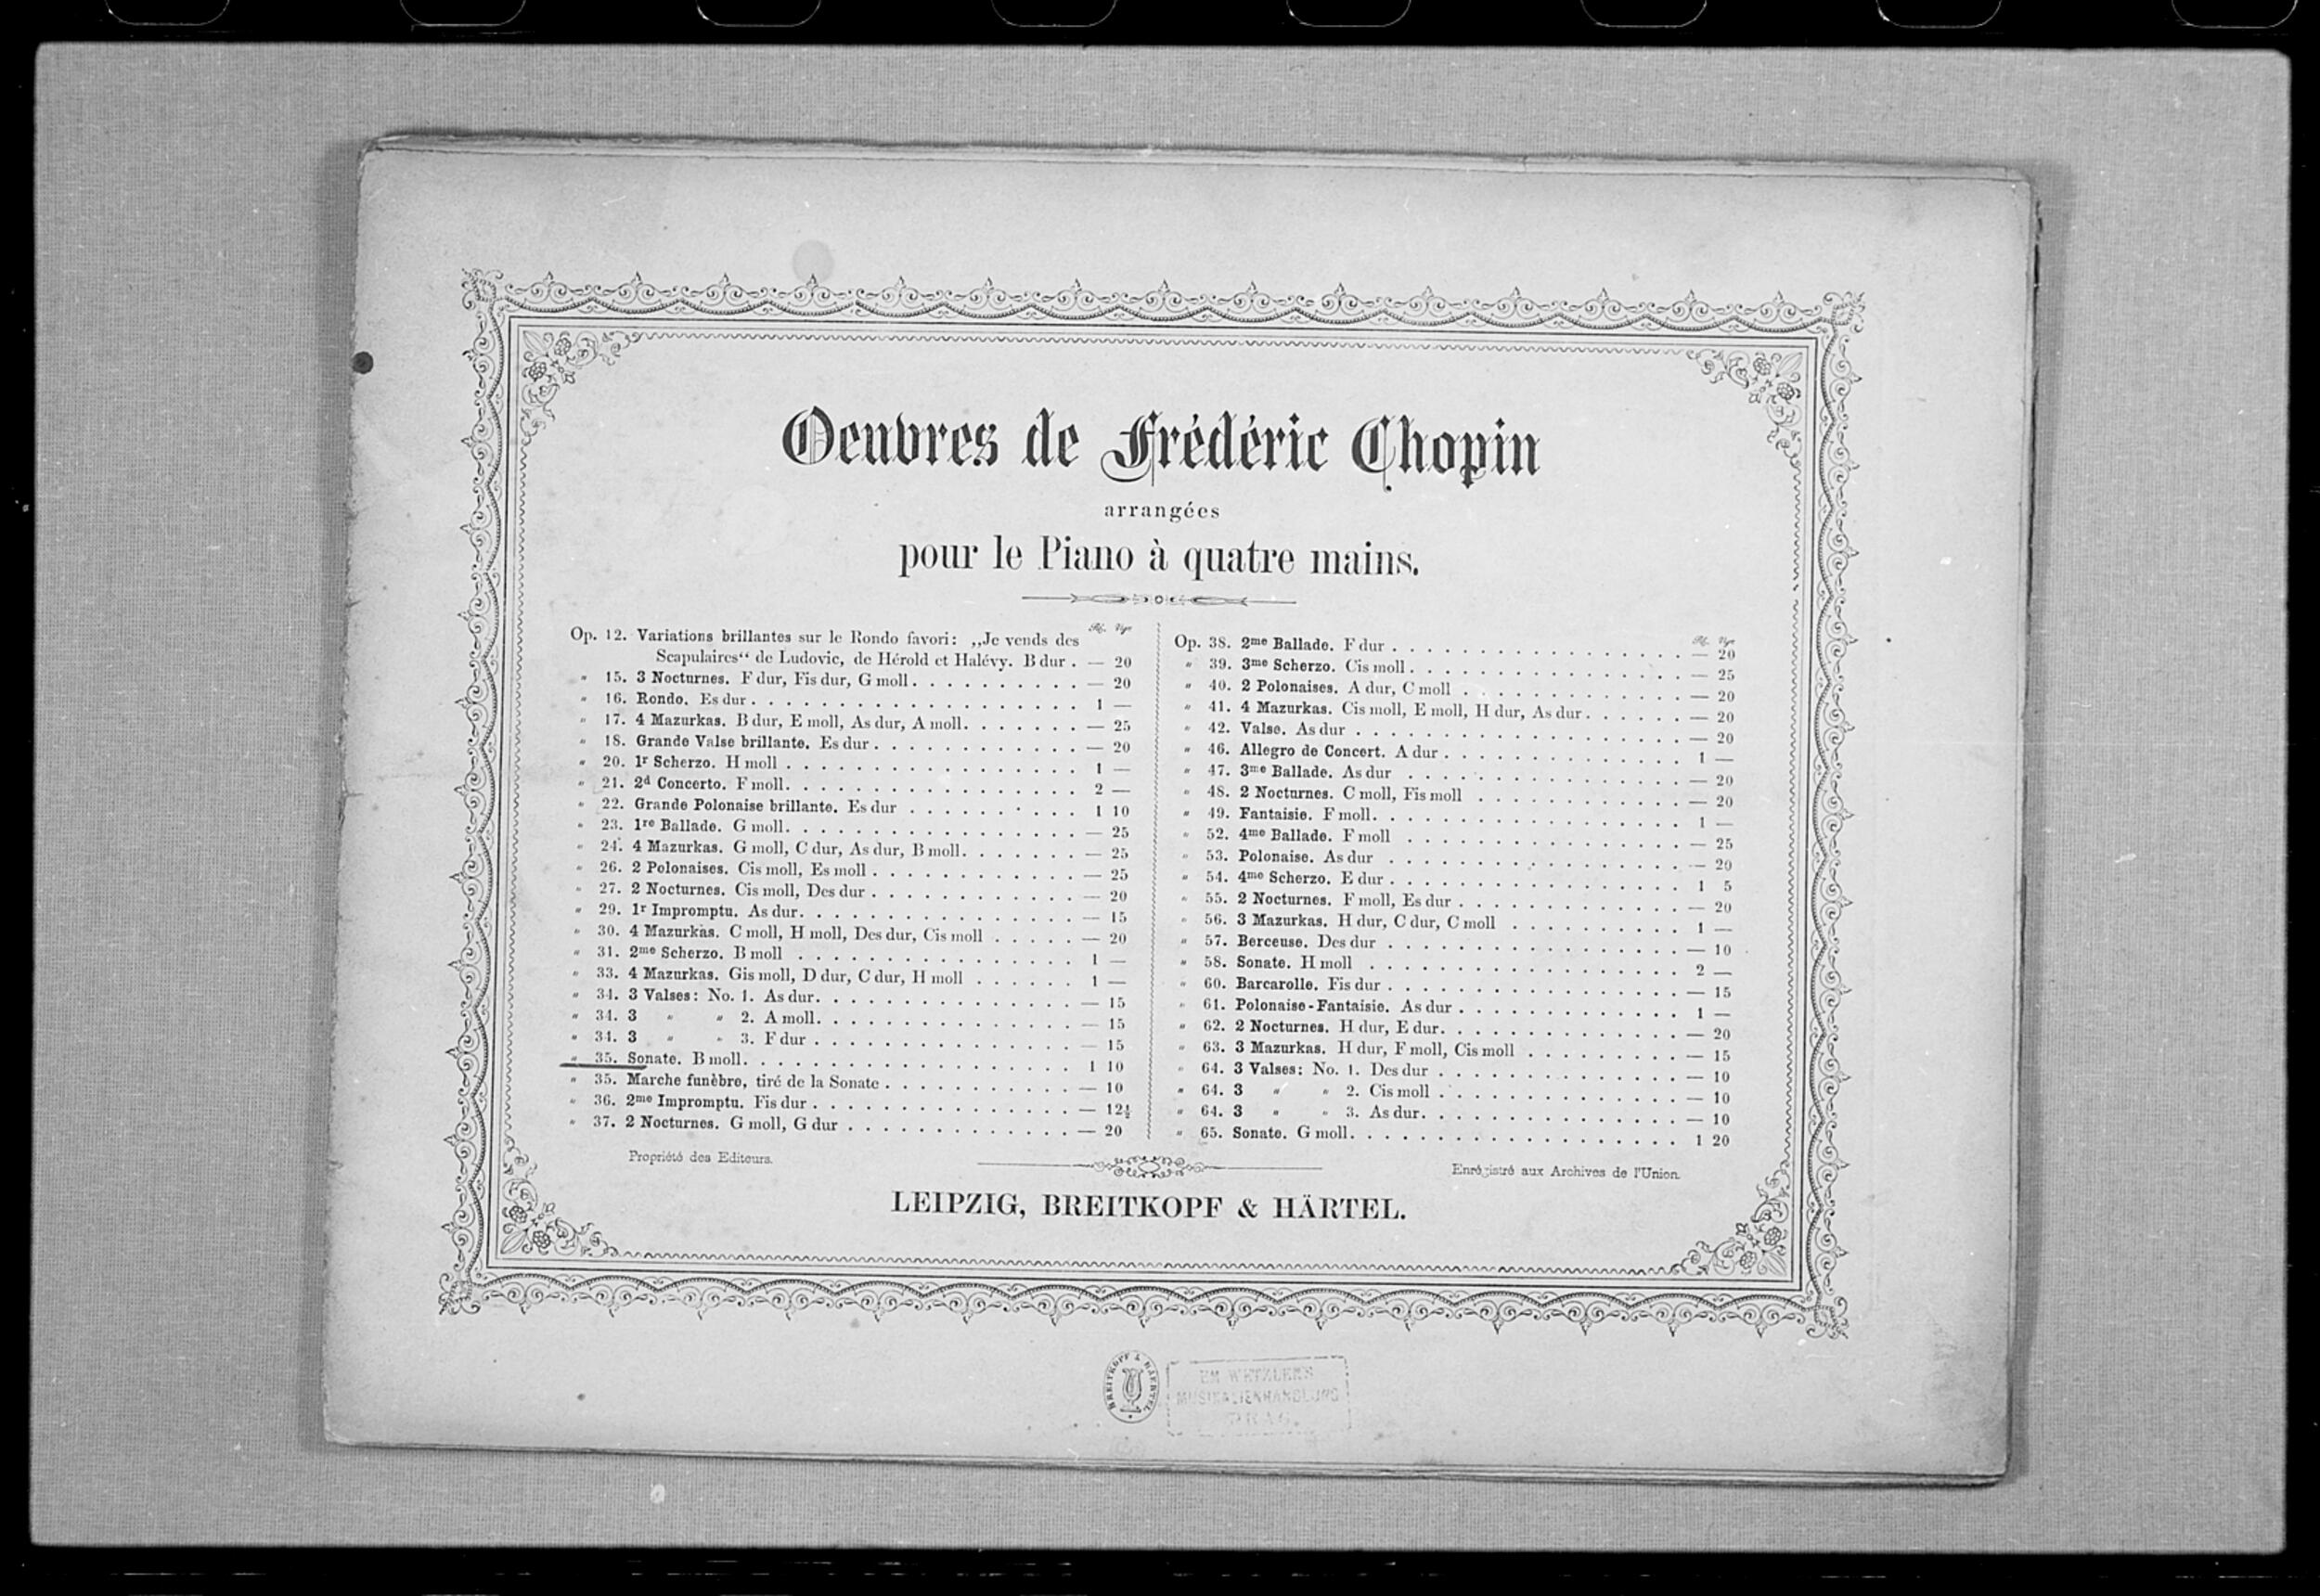 Oeuvres de Frédéric Chopin
arrangées
pour le Piano à quatre mains.
Op. 12. Variations brillantes sur le Rondo favori: „Je vends des
Scapulaires“ de Ludovic, de Hérold et Halévy. B dur . — 20
" 15. 3 Nocturnes. F dur, Fis dur, G moll . . . . . . . . . . — 20
" 16. Rondo. Es dur . . . . . . . . . . 1 —
" 17. 4 Mazurkas. B dur, E moll, As dur, A moll . . . . . . . — 25
" 18. Grande Valse brillante. Es dur . . . . . . . . . . — 20
" 20. 1r Scherzo. H moll . . . . . . . . . . 1 —
" 21. 2d Concerto. F moll . . . . . . . . . . 2 —
" 22. Grande Polonaise brillante. Es dur . . . . . . . . . . 1 10
" 23. 1re Ballade. G moll . . . . . . . . . . — 25
" 24. 4 Mazurkas. G moll, C dur, As dur, B moll . . . . . . . — 25
" 26. 2 Polonaises. Cis moll, Es moll . . . . . . . . . . — 25
" 27. 2 Nocturnes. Cis moll, Des dur . . . . . . . . . . — 20
" 29. 1r Impromptu. As dur . . . . . . . . . . — 15
" 30. 4 Mazurkas. C moll, H moll, Des dur, Cis moll . . . . . — 20
" 31. 2me Scherzo. B moll . . . . . . . . . . 1 —
" 33. 4 Mazurkas. Gis moll, D dur, C dur, H moll . . . . . . 1 —
" 34. 3 Valses: No. 1. As dur . . . . . . . . . . — 15
" 34. 3 " " 2. A moll . . . . . . . . . . — 15
" 34. 3 " " 3. F dur . . . . . . . . . . — 15
" 35. Sonate. B moll . . . . . . . . . . 1 10
" 35. Marche funèbre, tiré de la Sonate . . . . . . . . . . — 10
" 36. 2me Impromptu. Fis dur . . . . . . . . . . — 12½
" 37. 2 Nocturnes. G moll, G dur . . . . . . . . . . — 20
Op. 38. 2me Ballade. F dur . . . . . . . . . . — 20
" 39. 3me Scherzo. Cis moll . . . . . . . . . . — 25
" 40. 2 Polonaises. A dur, C moll . . . . . . . . . . — 20
" 41. 4 Mazurkas. Cis moll, E moll, H dur, As dur . . . . . . — 20
" 42. Valse. As dur . . . . . . . . . . — 20
" 46. Allegro de Concert. A dur . . . . . . . . . . 1 —
" 47. 3me Ballade. As dur . . . . . . . . . . — 20
" 48. 2 Nocturnes. C moll, Fis moll . . . . . . . . . . — 20
" 49. Fantaisie. F moll . . . . . . . . . . 1 —
" 52. 4me Ballade. F moll . . . . . . . . . . — 25
" 53. Polonaise. As dur . . . . . . . . . . — 20
" 54. 4me Scherzo. E dur . . . . . . . . . . 1 5
" 55. 2 Nocturnes. F moll, Es dur . . . . . . . . . . — 20
" 56. 3 Mazurkas. H dur, C dur, C moll . . . . . . . . . . 1 —
" 57. Berceuse. Des dur . . . . . . . . . . — 10
" 58. Sonate. H moll . . . . . . . . . . 2 —
" 60. Barcarolle. Fis dur . . . . . . . . . . — 15
" 61. Polonaise-Fantaisie. As dur . . . . . . . . . . 1 —
" 62. 2 Nocturnes. H dur, E dur . . . . . . . . . . — 20
" 63. 3 Mazurkas. H dur, F moll, Cis moll . . . . . . . . . — 15
" 64. 3 Valses: No. 1. Des dur . . . . . . . . . . — 10
" 64. 3 " " 2. Cis moll . . . . . . . . . . — 10
" 64. 3 " " 3. As dur . . . . . . . . . . — 10
" 65. Sonate. G moll . . . . . . . . . . 1 20
Propriété des Editeurs.
Enrégistré aux Archives de l'Union.
LEIPZIG, BREITKOPF & HÄRTEL.
BREITKOPF & HAERTEL
EM WETZLER'S
MUSIKALIENHANDLUNG
PRAG.